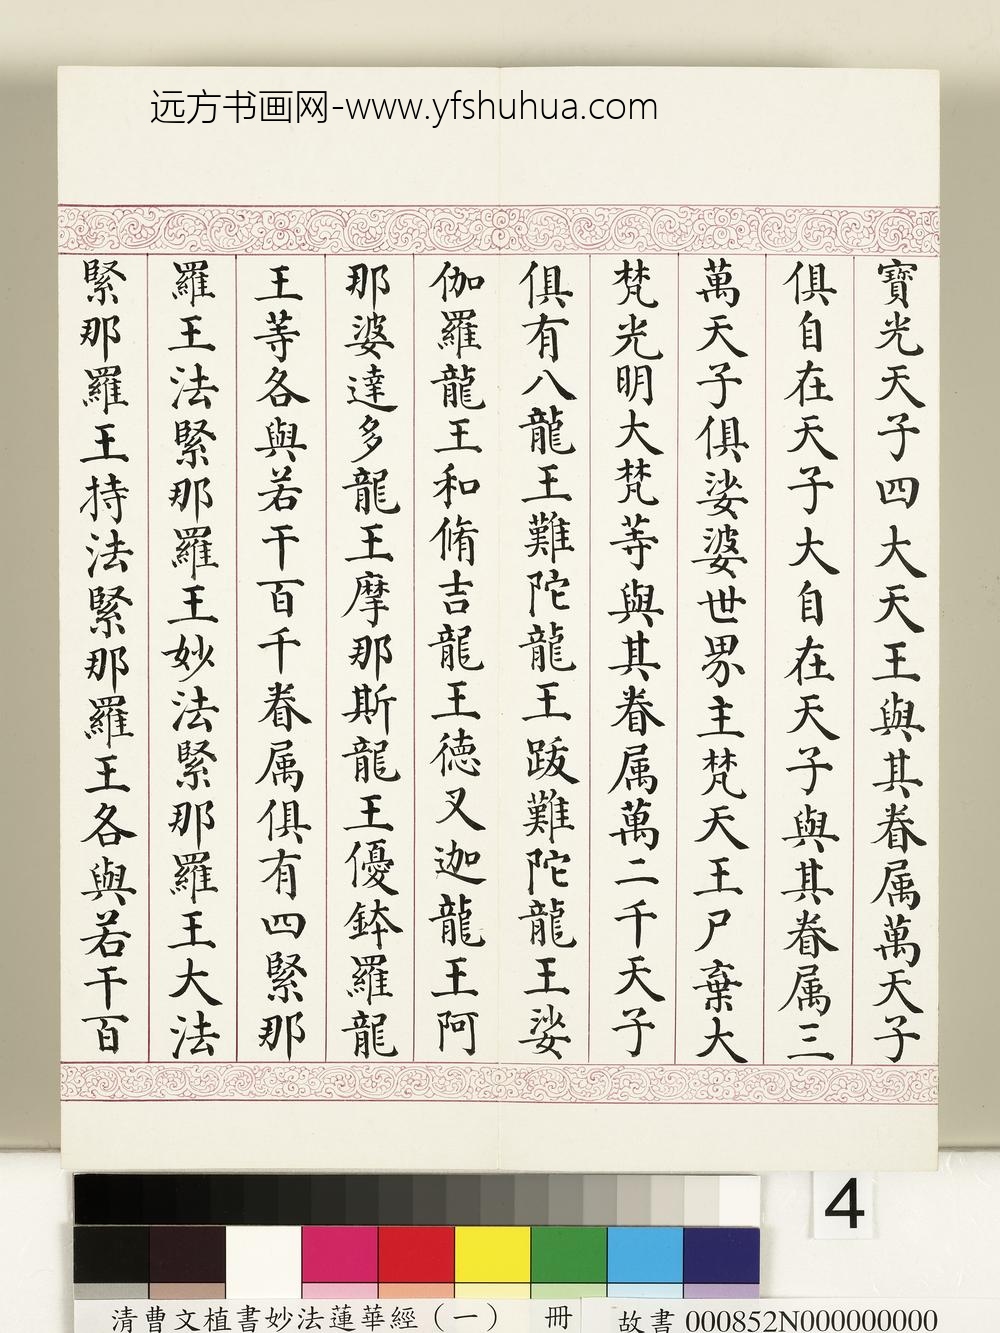 远方书画网-www.yfshuhua.com
寶光天子四大天王與其眷属萬天子
俱自在天子大自在天子與其眷属三
萬天子俱娑婆世界主梵天王尸棄大
梵光明大梵等與其眷属萬二千天子
俱有八龍王難陀龍王跋難陀龍王娑
伽羅龍王和脩吉龍王德叉迦龍王阿
那婆達多龍王摩那斯龍王優鉢羅龍
王等各與若干百千眷属俱有四緊那
羅王法緊那羅王妙法緊那羅王大法
緊那羅王持法緊那羅王各與若干百
4
清曹文植書妙法蓮華經（一） 冊
故書 000852N000000000